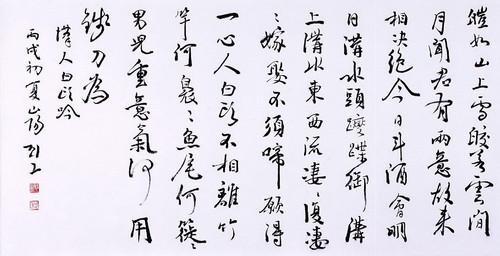 皚如山上雪皎若雲間
月聞君有兩意故來
相决絕今日斗酒會明
旦溝水頭躞蹀御溝
上溝水東西流凄〻復凄
〻嫁娶不須啼願得
一心人白頭不相離竹
竿何裊〻魚尾何簁〻
男兒重意氣何用
錢刀為
漢人白頭吟
丙戌初夏山陽